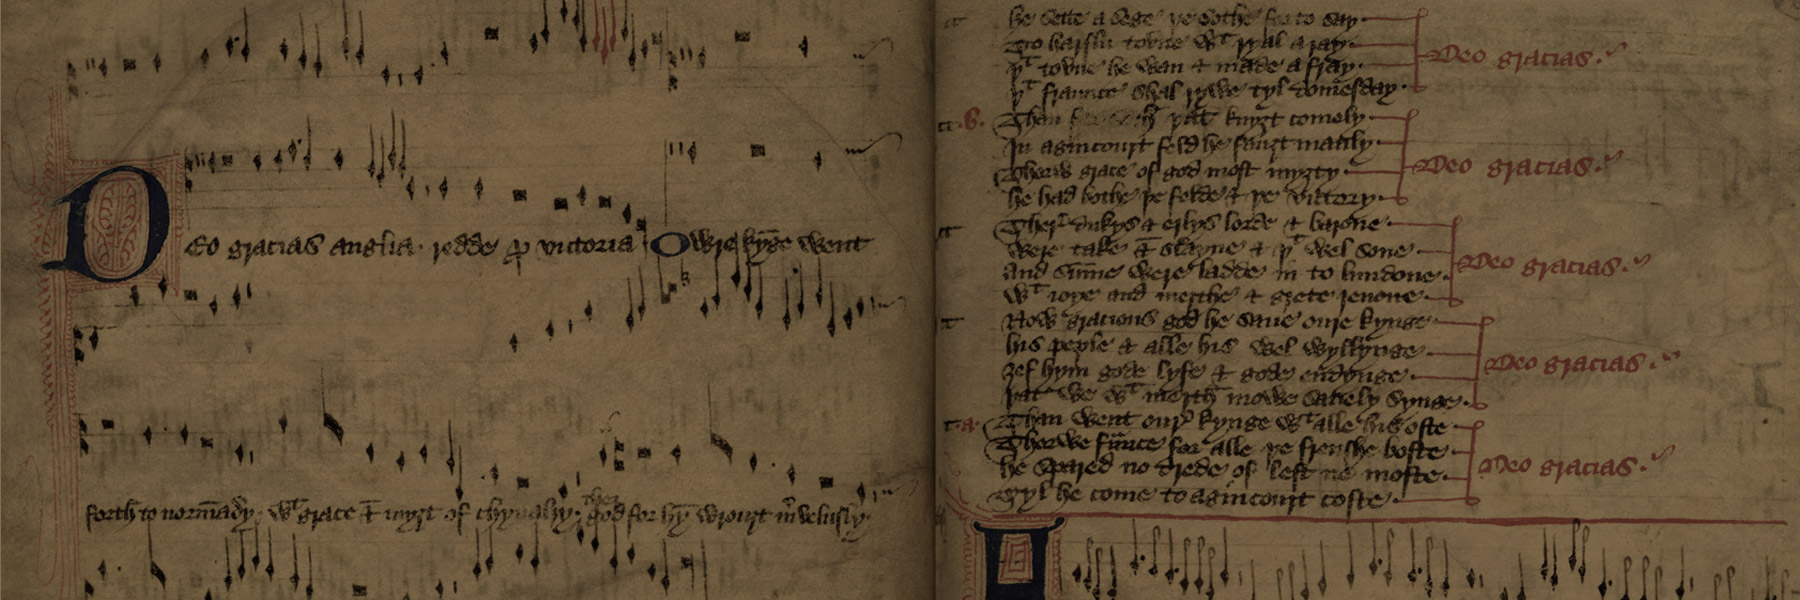 Deo gracias anglia · redde p victoria · Owre kynge went
forth to normādy · wᵗ grace & myȝt of chyvalry · ther god for hȳ wrouȝt
he sette a sege þe sothe for to say ·
To harflu toune wᵗ ryal aray ·
þᵗ toune he wan & made a fray ·
þᵗ fraunce shal rywe tyl domesday ·
Deo gracias ·
Than þat knyȝt comely ·
In agincourt feld he fauȝt manly ·
Thorw grace of god most myȝty ·
he had bothe þe felde & þe victory ·
Deo gracias ·
Ther dukys & erlys lorde & barone ·
were take & slayne & þᵗ wel sone ·
and sūme were ladde in to lundone ·
wᵗ ioye and merthe & grete renone ·
Deo gracias ·
Now gracious god he saue oure kynge ·
his peple & alle his wel wyllynge ·
ȝef hym gode lyfe & gode endynge ·
þat we wᵗ merth mowe savely synge ·
Deo gracias ·
Than went oure kynge wᵗ alle his oste ·
Thorwe fraunce for alle þe frenshe boste ·
he spared no drede of lest ne moste ·
Tyl he come to agincourt coste ·
Deo gracias ·